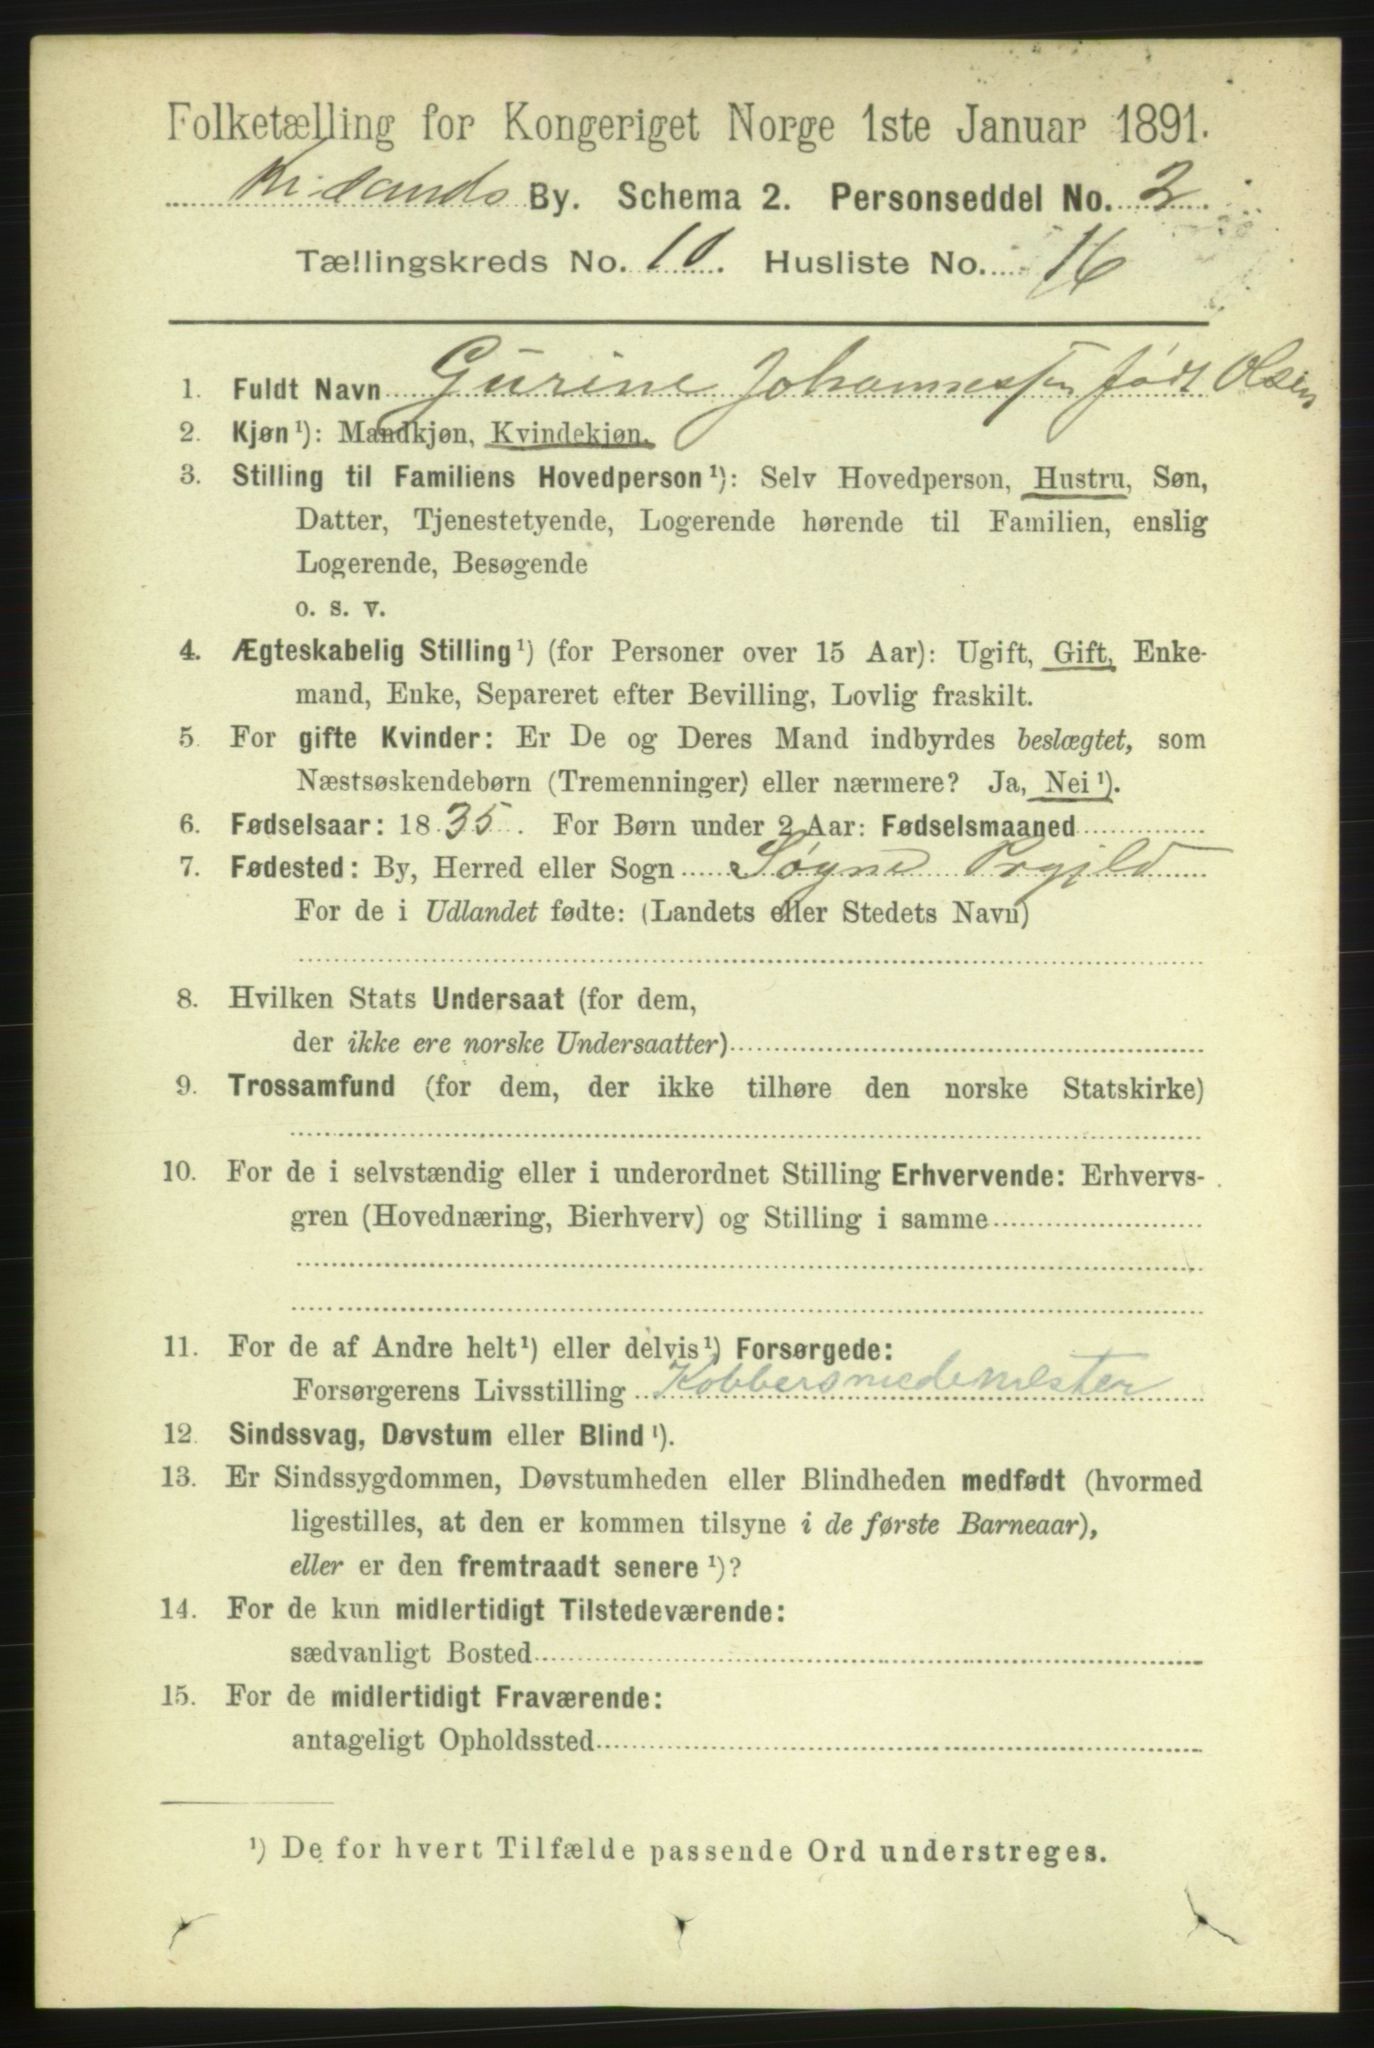 Folketælling for Kongeriget Norge 1ste Januar 1891.
Kr.sands By. Schema 2. Personseddel No. 2.
Tællingskreds No. 10. Husliste No. 16
1. Fuldt Navn Gurine Johannessen født Olsen
2. Kjøn ¹): Mandkjøn, Kvindekjøn.
3. Stilling til Familiens Hovedperson ¹): Selv Hovedperson, Hustru, Søn,
Datter, Tjenestetyende, Logerende hørende til Familien, enslig
Logerende, Besøgende
o. s. v.
4. Ægteskabelig Stilling ¹) (for Personer over 15 Aar): Ugift, Gift, Enke-
mand, Enke, Separeret efter Bevilling, Lovlig fraskilt.
5. For gifte Kvinder: Er De og Deres Mand indbyrdes beslægtet, som
Næstsøskendebørn (Tremenninger) eller nærmere? Ja, Nei ¹).
6. Fødselsaar: 1835. For Børn under 2 Aar: Fødselsmaaned
7. Fødested: By, Herred eller Sogn Søgne Prgjld
For de i Udlandet fødte: (Landets eller Stedets Navn)
8. Hvilken Stats Undersaat (for dem,
der ikke ere norske Undersaatter)
9. Trossamfund (for dem, der ikke tilhøre den norske Statskirke)
10. For de i selvstændig eller i underordnet Stilling Erhvervende: Erhvervs-
gren (Hovednæring, Bierhverv) og Stilling i samme
11. For de af Andre helt ¹) eller delvis ¹) Forsørgede:
Forsørgerens Livsstilling Kobbersmedemester
12. Sindssvag, Døvstum eller Blind ¹).
13. Er Sindssygdommen, Døvstumheden eller Blindheden medfødt (hvormed
ligestilles, at den er kommen tilsyne i de første Barneaar),
eller er den fremtraadt senere ¹)?
14. For de kun midlertidigt Tilstedeværende:
sædvanligt Bosted
15. For de midlertidigt Fraværende:
antageligt Opholdssted
¹) De for hvert Tilfælde passende Ord understreges.